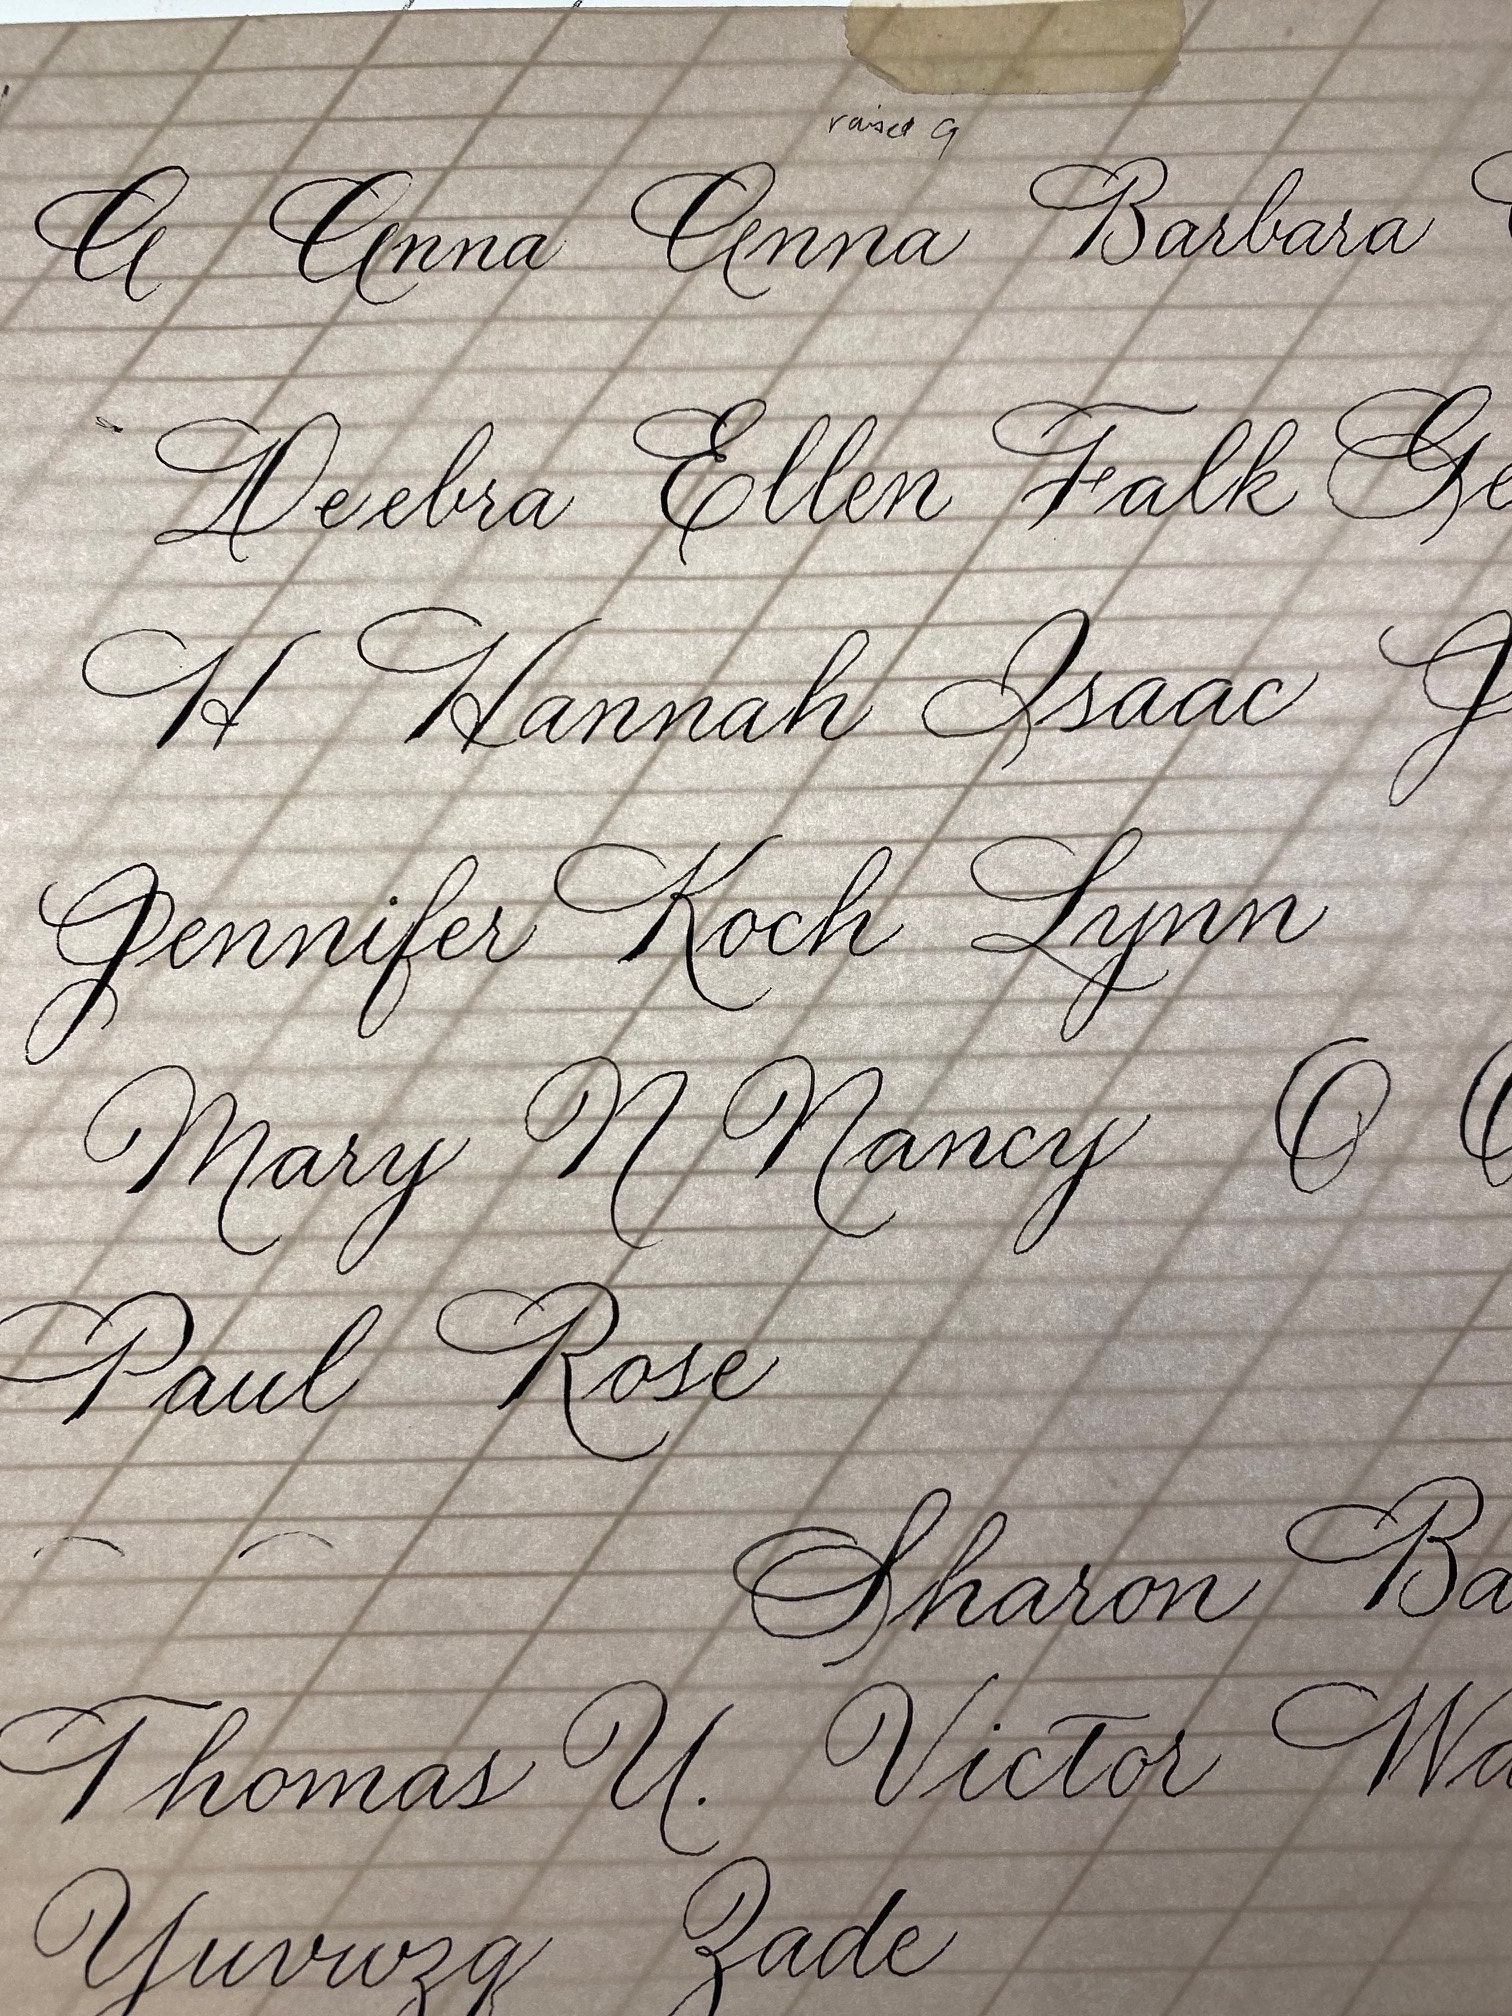 raised a
A Anna Anna Barbara
Deebra Ellen Falk Ge
H Hannah Isaac J
Jennifer Koch Lynn
Mary N Nancy O O
Paul Rose
Sharon Ba
Thomas U. Victor Wa
Yuvwzq Zade